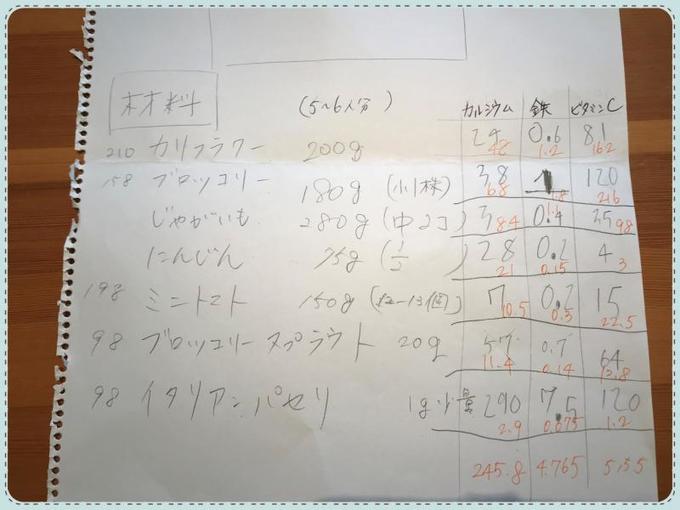 材料 (5~6人分) カルシウム 鉄 ビタミンC
210 カリフラワー 200g 24 0.6 81
48 1.2 162
158 ブロッコリー 180g (小1株) 38 1 120
68 1.8 216
じゃがいも 280g (中2コ) 3 0.4 35
84 98
にんじん 75g (1/2 ) 28 0.2 4
21 0.15 3
198 ミニトマト 150g (12-13個) 7 0.2 15
10.5 0.3 22.5
98 ブロッコリースプラウト 20g 57 0.7 64
11.4 0.14 12.8
98 イタリアンパセリ 1g 少量 290 7.5 120
2.9 0.075 1.2
245.8 4.765 515.5